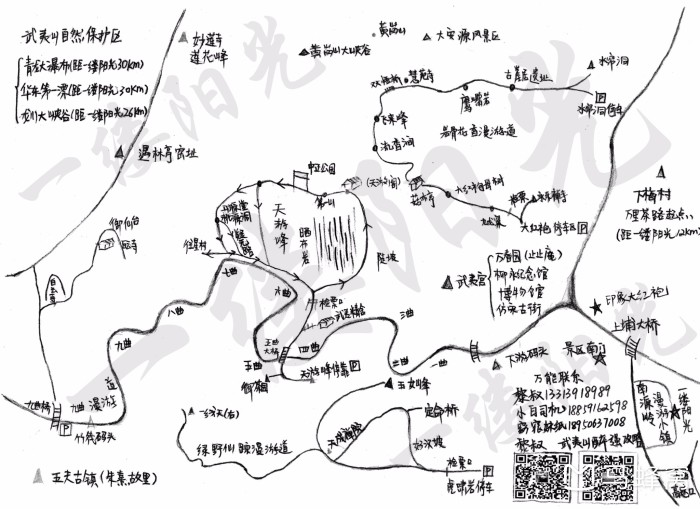 武夷山自然保护区
青龙大瀑布(距一缕阳光30km)
华东第一漂(距一缕阳光30km)
龙川大峡谷(距一缕阳光26km)
妙莲寺
莲花峰
黄岗山
黄岗山大峡谷
大安源风景区
双悬桥
慧苑寺
鹰嘴岩
古崖居遗址
水帘洞
水帘洞停车
P
飞来峰
流香涧
岩骨花香漫游道
遇林亭窑址
中正公园
第一山
(天游方向)
大红袍母树
检票
永乐禅寺
九龙窠
大红袍停车区
P
下梅村
万里茶路起点
(距一缕阳光12km)
天游峰
晒布岩
陡坡
检票口
武夷精舍
武夷宫
万春园(止止庵)
柳永纪念馆
博物馆
仿宋古街
印象大红袍
上埔大桥
九曲
八曲
七曲
六曲
五曲
五曲大桥
四曲
三曲
二曲
一曲
御茶园
天游峰停靠
P
下游码头
景区南门
九曲桥
漫游道
竹筏码头
P
玉女峰
一线天(右)
绿野仙踪漫游道
定命桥
好汉坡
检票口
虎啸岩停车
P
五夫古镇(朱熹故里)
万能联系
黎叔13313918989
小白司机18859162598
18950637008
黎叔
武夷山自驾强攻略
南源岭
漫游小镇
一缕阳光
高速口
一缕阳光